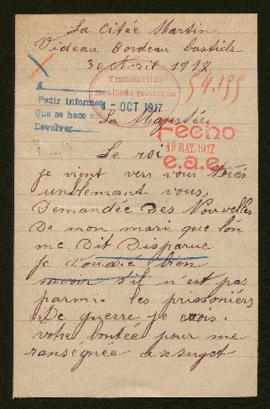 La Citée Martin
Videau Bordeau Bastide
30 Avril 1917
Transmitido
54.199
A
Pedir informes
Que se hace
Devolver
4 - OCT 1917
Sa Majestée
Fecho
19 MAY. 1917
e.a.e.
Le roi
je vient vers vous très
umblemant vous
Demandée Des Nouvelles
De mon mari que lon
me Dit Disparue
je voudré bien
savoir s'il n'est pas
parmi les prisoniers
De guerre je crois
votre bontée pour me
ranségnée a se sugot